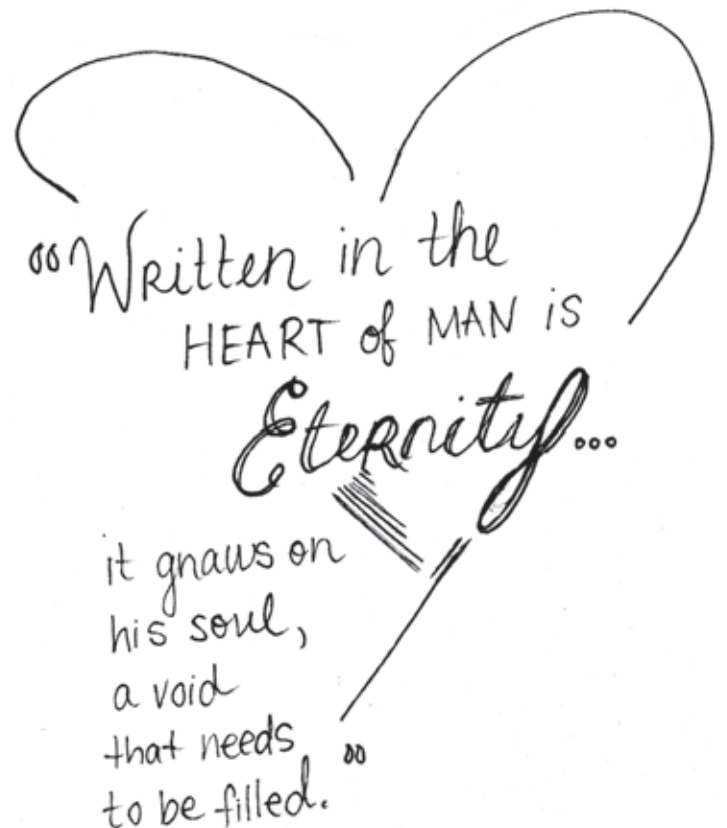 "Written in the
HEART of MAN is
Eternity...
it gnaws on
his soul,
a void
that needs
to be filled."